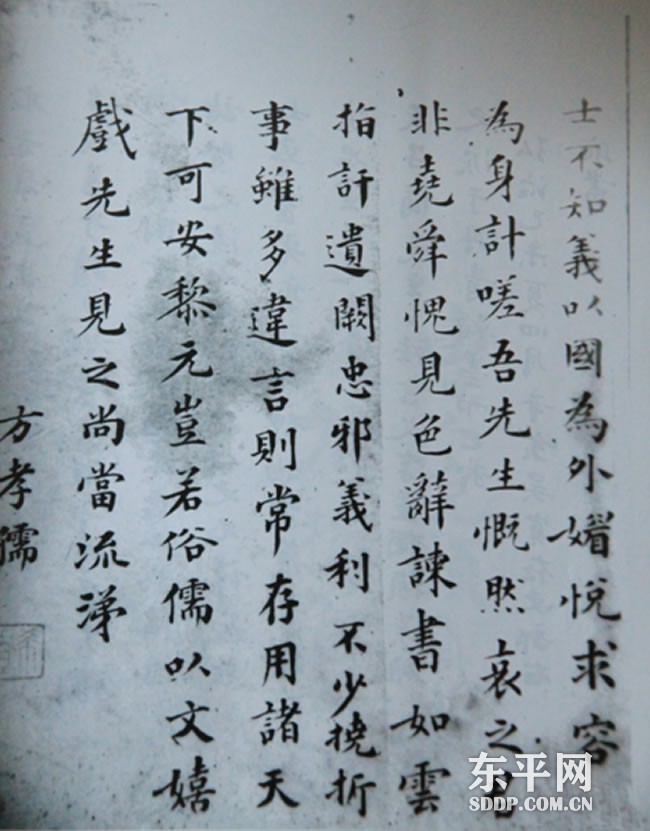 士不知義以國為外媚悅求容
為身計嗟吾先生慨然哀之君
非堯舜愧見色辭諫書如雲
指訐遺闕忠邪義利不少撓折
事雖多違言則常存用諸天
下可安黎元豈若俗儒以文嬉
戲先生見之尚當流涕
方孝孺
东平网
SDDP.COM.CN